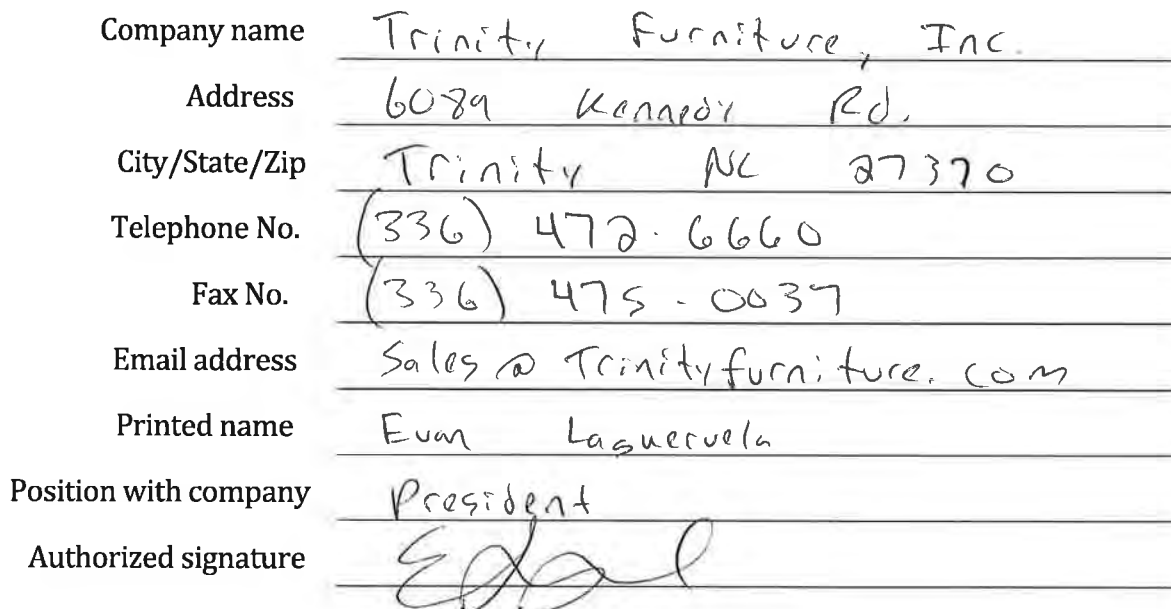 Company name Trinity Furniture, Inc.
Address 6089 Kennedy Rd.
City/State/Zip Trinity NC 27370
Telephone No. (336) 472-6660
Fax No. (336) 475-0037
Email address Sales@Trinityfurniture.com
Printed name Evan Lasuervela
Position with company President
Authorized signature